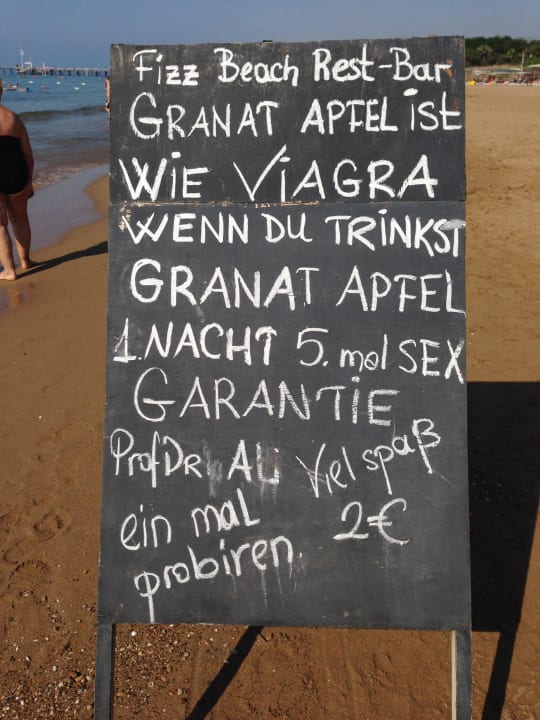 Fizz Beach Rest-Bar
GRANAT APFEL ist
WIE VIAGRA
WENN DU TRINKST
GRANAT APFEL
1.NACHT 5.mal SEX
GARANTIE
Prof DR ALI Viel spaß
ein mal 2€
probiren.